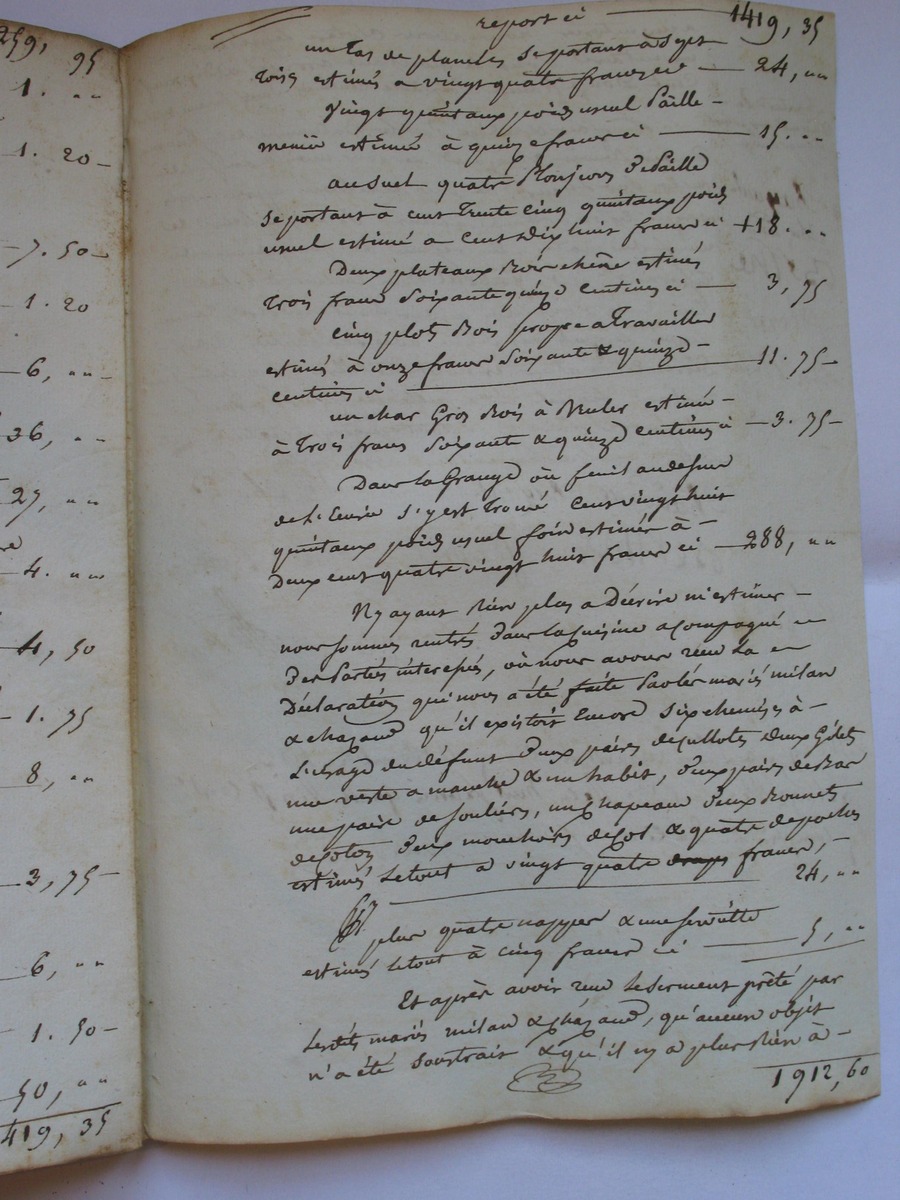 259, 95
1. ,,
1. 20
7. 50
1. 20
6, ,,
36, ,,
27, ,,
4. ,,
4, 50
1. 75
8, ,,
3, 75
6, ,,
1. 50
50, ,,
419, 35
report ci 1419, 35
un tas de planches se portant à sept
toises estimés a vingt quatre francs ci 24, ,,
Vingt quintaux poids usuel Paille
menüe estimée à quinze francs ci 15. ,,
au quatre de Paille
se portant à cent trente cinq quintaux poids
usuel estimé a Cent dix huit francs ci 118. ,,
Deux plateaux Bois chêne estimés
trois francs soixante quinze centimes ci 3, 75
cinq plots Bois propre a travailler
estimés à onze francs soixante & quinze
centimes ci 11. 75
un char Gros Bois à Bruler estimé
à trois francs soixante & quinze centimes ci 3. 75
Dans la Grange ou fenil au dessus
de l'Ecurie s'y est trouvé Cent vingt huit
quintaux poids usuel foin estimés à
Deux cent quatre vingt huit francs ci 288, ,,
N'y ayant Rien plus a Décrire ni estimer
nous sommes rentrés dans la cuisine acompagné
des Parties interessées, où nous avons reçu la
Déclaration qui nous a été faite par les mariés milan
& chazaud qu'il existoit Encore six chemises à
L'usage du défunt deux paires de cullotes deux Gilets
une veste a manche & un habit, deux paires de Bas
une paire de souliers, un chapeau deux Bonnets
de coton deux mouchoirs de col & quatre de poches
estimés Le tout a vingt quatre francs,
24, ,,
plus quatre nappes & une serviette
estimés le tout à cinq francs ci 5, ,,
Et après avoir reçu le serment prêté par
Lesdits mariés milan & chazaud, qu'aucun objet
n'a été soustrait & qu'il n'y a plus Rien à
1912, 60